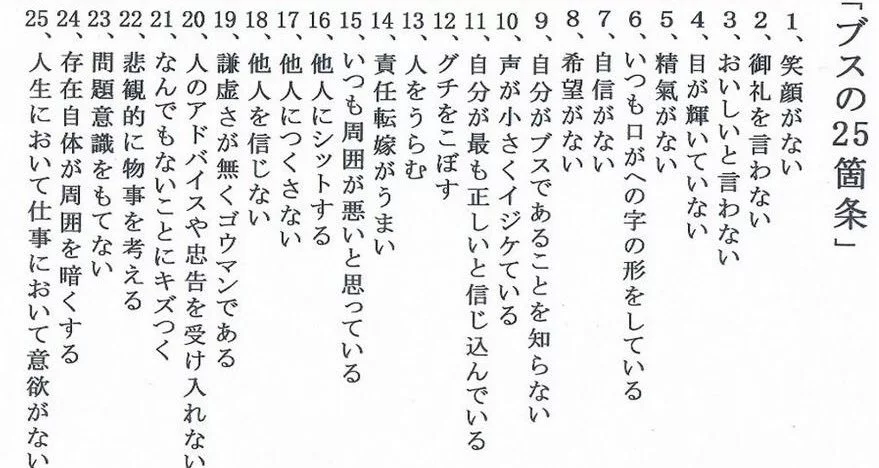 「ブスの25箇条」
1、笑顔がない
2、御礼を言わない
3、おいしいと言わない
4、目が輝いていない
5、精氣がない
6、いつも口がへの字の形をしている
7、自信がない
8、希望がない
9、自分がブスであることを知らない
10、声が小さくイジケている
11、自分が最も正しいと信じ込んでいる
12、グチをこぼす
13、人をうらむ
14、責任転嫁がうまい
15、いつも周囲が悪いと思っている
16、他人にシットする
17、他人につくさない
18、他人を信じない
19、謙虚さが無くゴウマンである
20、人のアドバイスや忠告を受け入れない
21、なんでもないことにキズつく
22、悲観的に物事を考える
23、問題意識をもてない
24、存在自体が周囲を暗くする
25、人生において仕事において意欲がない